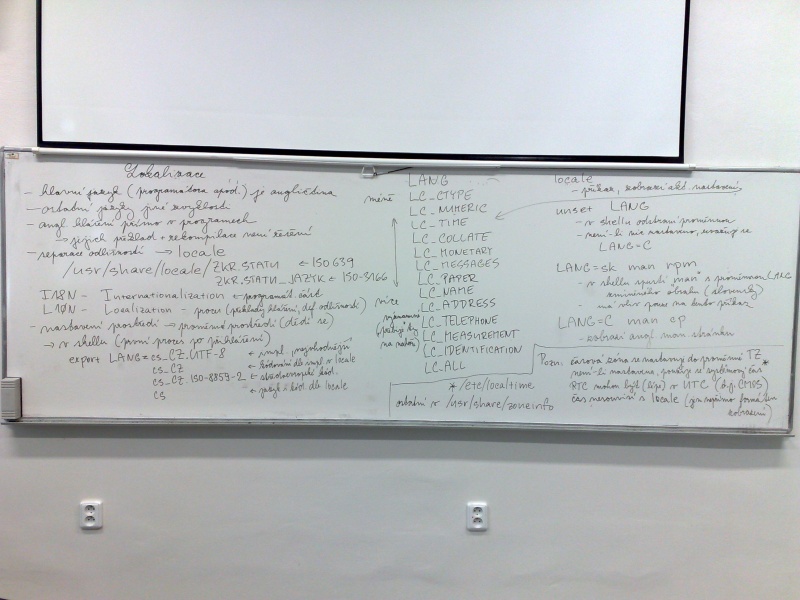 Lokalizace
- hlavní jazyk (programátora apod.) je angličtina
- ostatní jazyky jiné zvyklosti
- angl. hlášení přímo v programech
→ jejich překlad + rekompilace není řešení
- separace odlišností → locale
/usr/share/locale/ZKR.STATU ← ISO 639
ZKR.STATU_JAZYK ← ISO-3166
I18N - Internationalization ←
L10N - Localization - proces (překlady hlášení, def. odlišností)
- nastavení prostředí → proměnné prostředí (dědí se)
→ v shellu (první proces po přihlášení)
export LANG=cs_CZ.UTF-8
cs_CZ ← kódování dle impl. v locale
cs_CZ.ISO-8859-2 ←
cs ← jazyk i kód. dle locale
méně
více
významné
LANG
LC_CTYPE
LC_NUMERIC
LC_TIME
LC_COLLATE
LC_MONETARY
LC_MESSAGES
LC_PAPER
LC_NAME
LC_ADDRESS
LC_TELEPHONE
LC_MEASUREMENT
LC_IDENTIFICATION
LC_ALL
* /etc/localtime
ostatní v /usr/share/zoneinfo
locale
- příkaz, zobrazí akt. nastavení
unset LANG
- v shellu odstraní proměnnou
- není-li nic nastaveno, uvažuj se
LANG=C
LANG=sk man rpm
- v shellu spustí "man" s proměnnou LANG
zmíněného obsahu (slovensky)
- má vliv pouze na tento příkaz
LANG=C man cp
- zobrazí angl. man stránku
Pozn. časová zóna se nastavuje do proměnné TZ
není-li nastavena, použije se systémový čas *
RTC mohou být (lépe) v UTC (CMOS)
čas nesouvisí s locale (jen formátem
zobrazení)